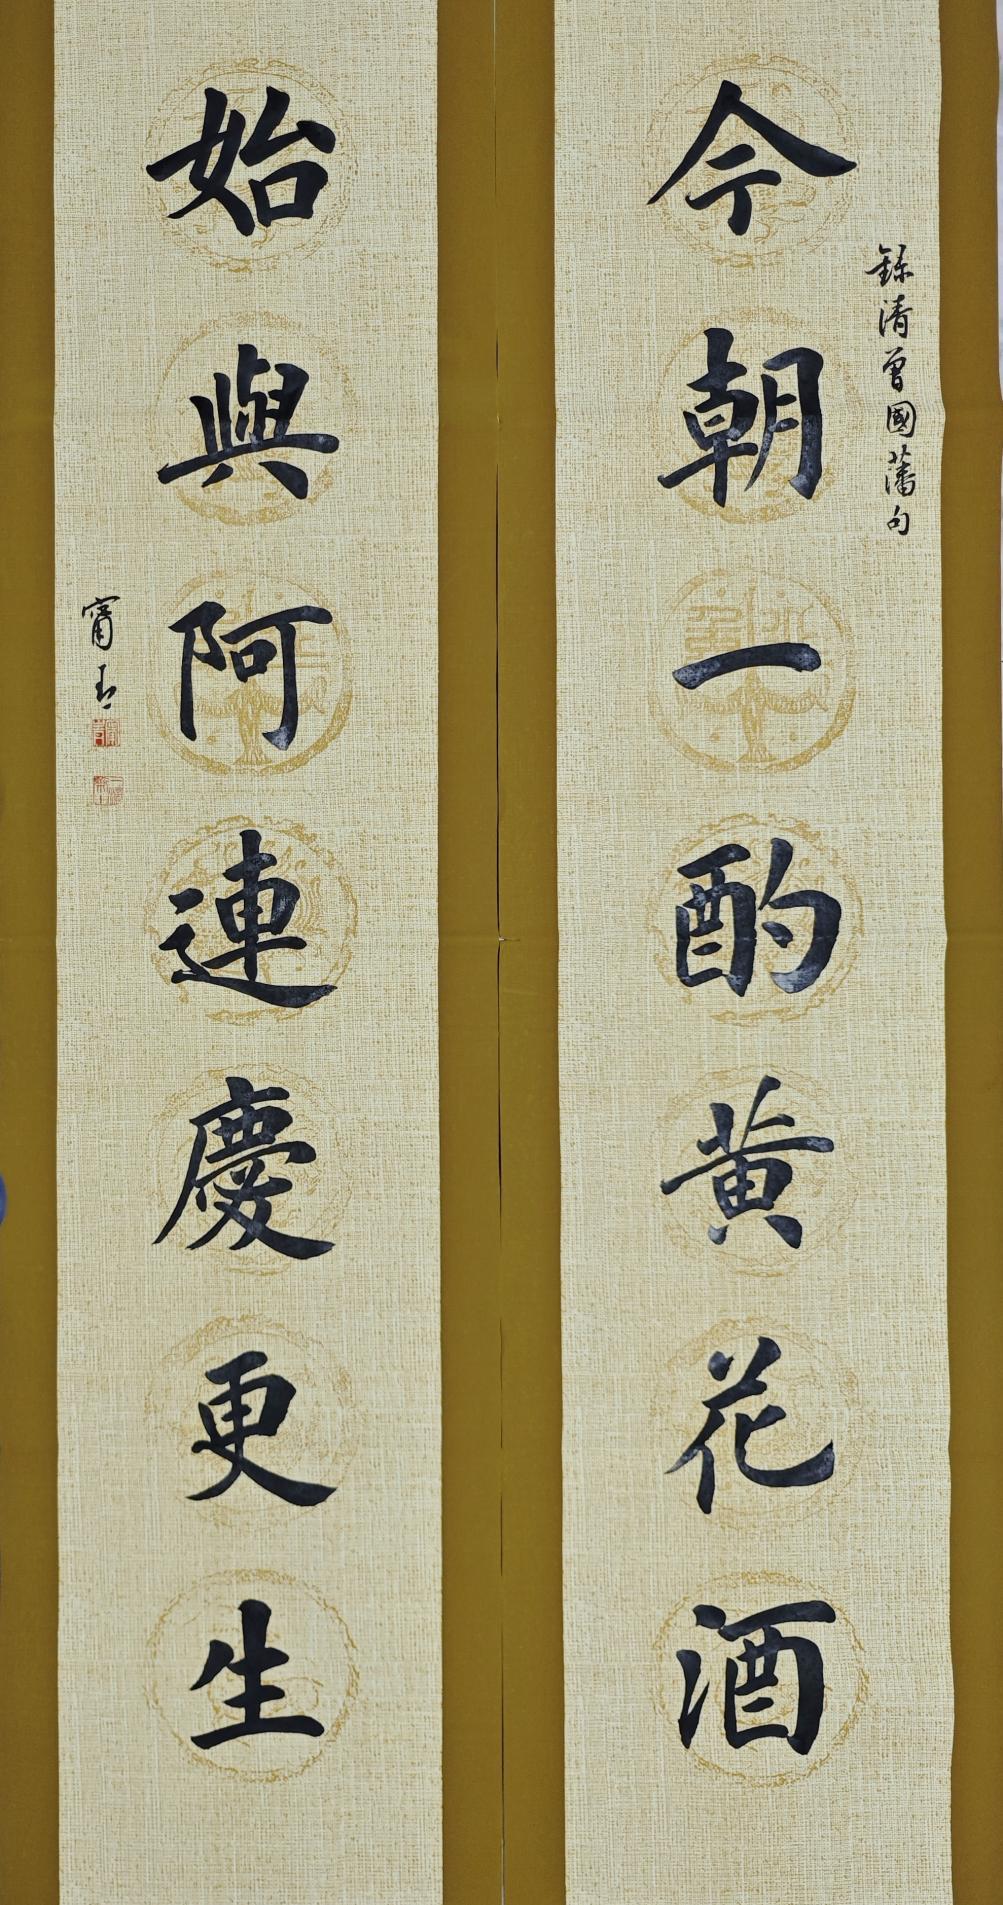 今朝一酌黄花酒
錄清曾國藩句
始與阿連慶更生